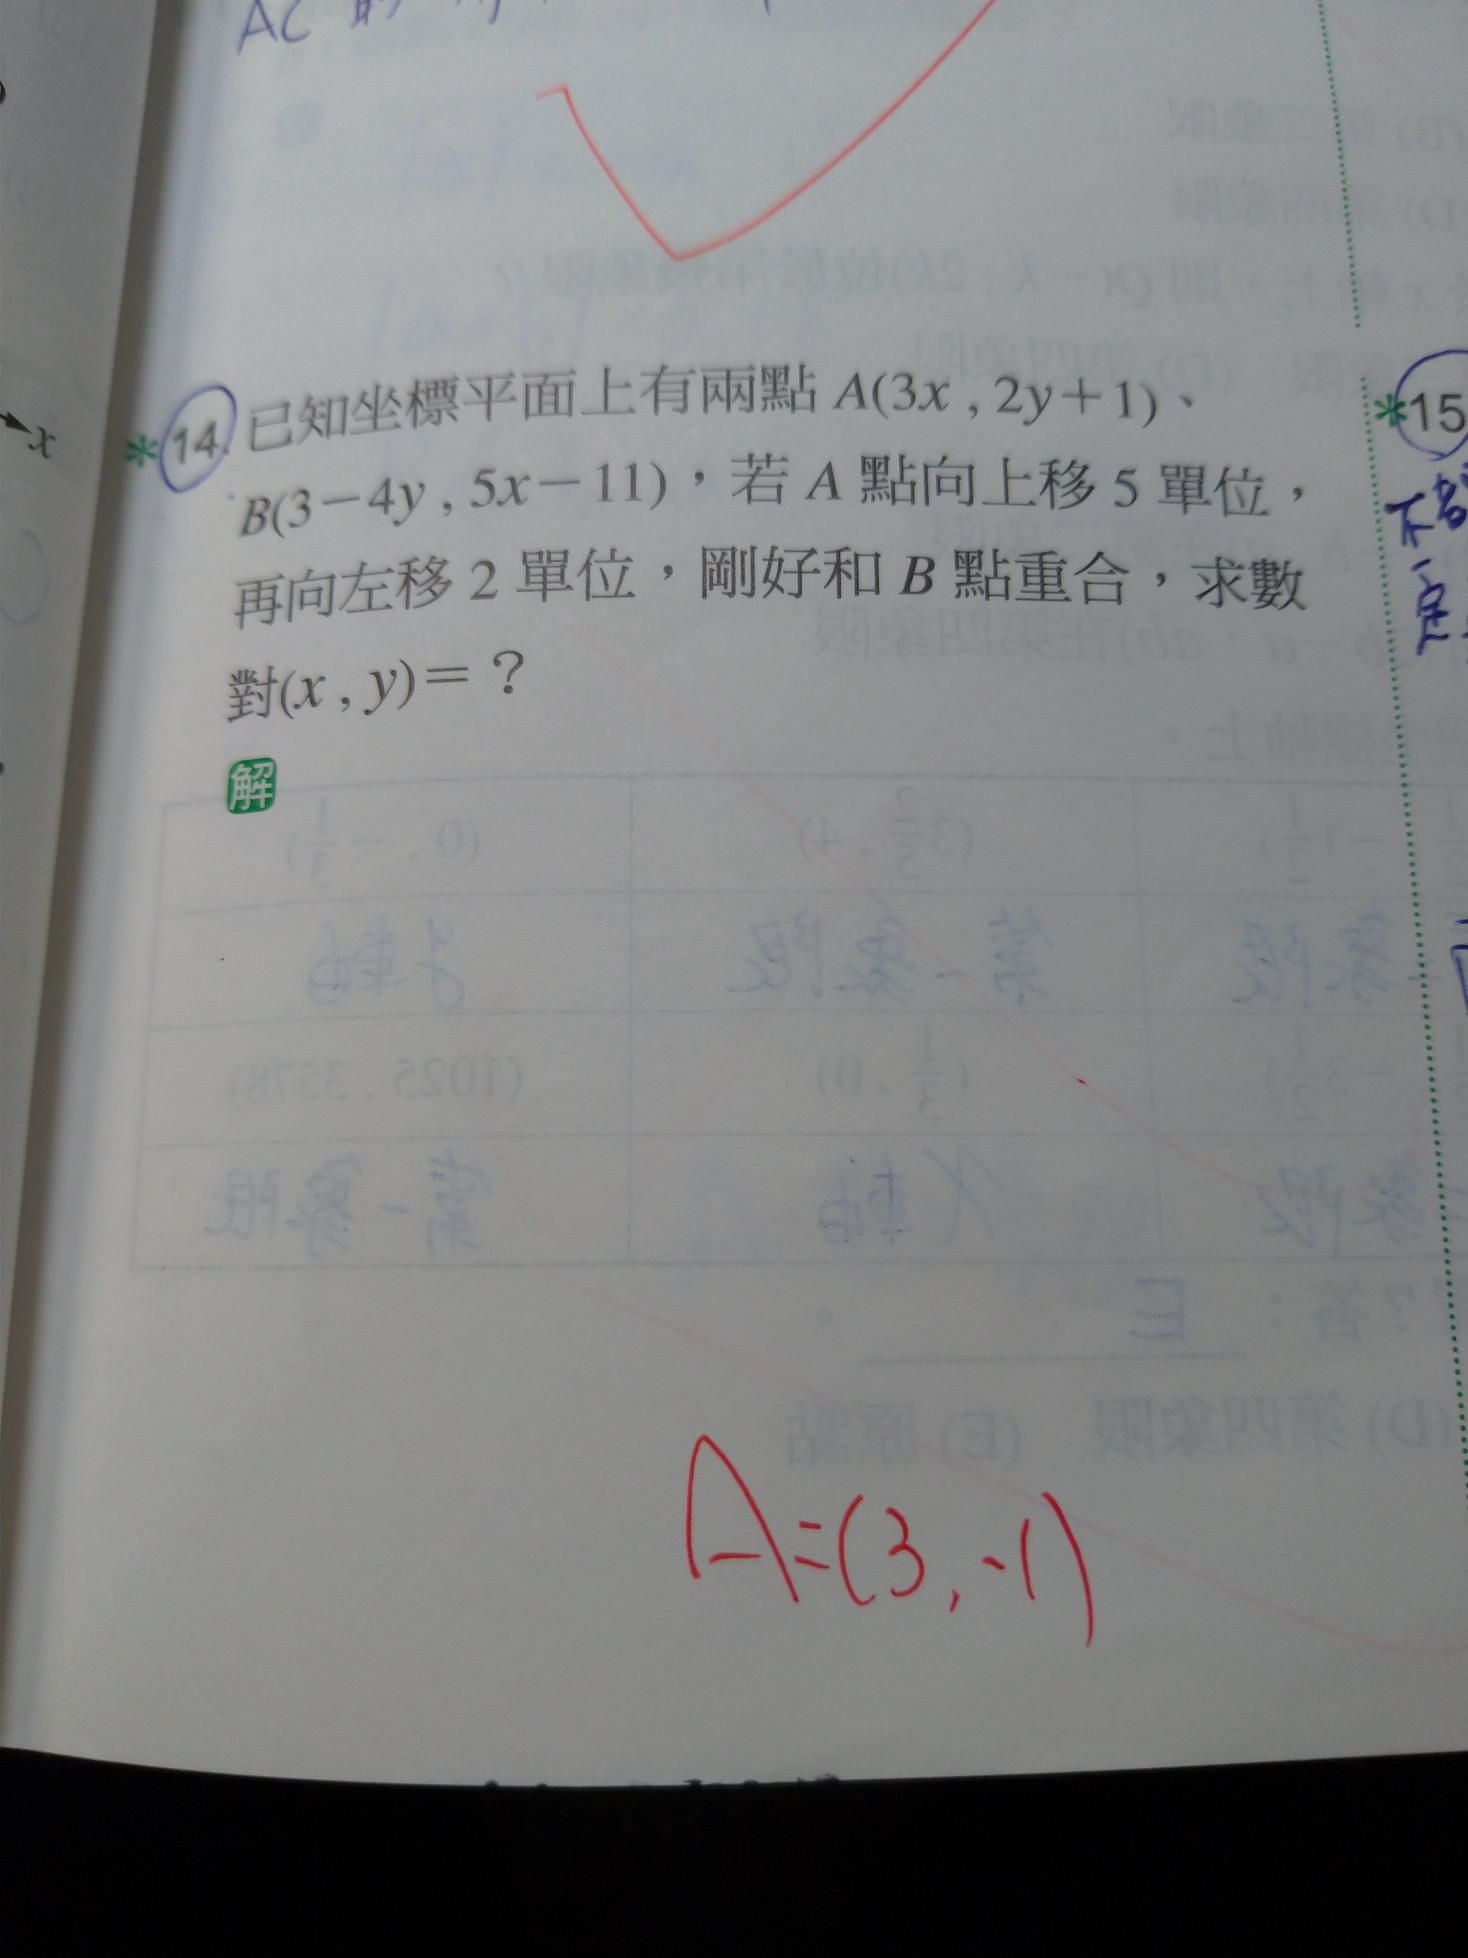 AC 的
*14. 已知坐標平面上有兩點 A(3x , 2y+1)、
B(3-4y , 5x-11),若 A 點向上移 5 單位,
再向左移 2 單位,剛好和 B 點重合,求數
對(x , y)=?
解
A=(3, -1)
x
*15